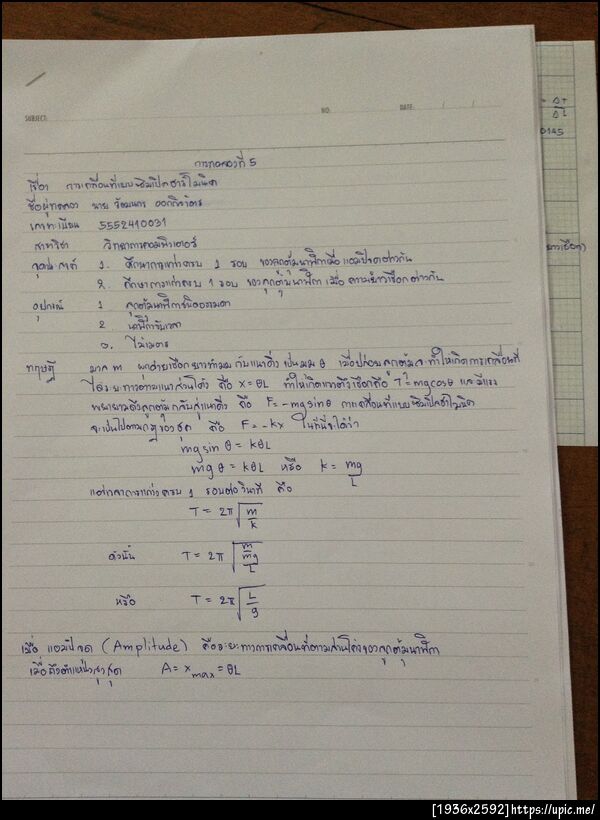 SUBJECT: NO: DATE: / /
การทดลองที่ 5
เรื่อง การเคลื่อนที่แบบซิมเปิลฮาร์โมนิค
ชื่อผู้ทดลอง นาย
เลขทะเบียน 5552410031
สาขาวิชา วิทยาการคอมพิวเตอร์
จุดประสงค์ 1. ศึกษาการแกว่งครบ 1 รอบ ของลูกตุ้มนาฬิกาเมื่อแอมปิจูดต่างกัน
2. ศึกษาการแกว่งครบ 1 รอบ ของลูกตุ้มนาฬิกา เมื่อ ความยาวเชือกต่างกัน
อุปกรณ์ 1 ลูกตุ้มนาฬิกาชนิดธรรมดา
2. นาฬิกาจับเวลา
3. ไม้เมตร
ทฤษฎี มวล m ผูกด้วยเชือกยาวทำมุมกับแนวดิ่ง เป็นมุม θ เมื่อปล่อยลูกตุ้มจะทำให้เกิดการเคลื่อนที่
ได้ระยะทางตามแนวส่วนโค้ง คือ x = θL ทำให้เกิดแรงตึงเชือกคือ T = mg cos θ และมีแรง
พยายามดึงลูกตุ้มกลับสู่แนวดิ่ง คือ F = -mg sin θ การเคลื่อนที่แบบซิมเปิลฮาร์โมนิค
จะเป็นไปตามกฎของฮุค คือ F = -kx ในที่นี้จะได้ว่า
mg sin θ = kθL
mg θ = kθL หรือ k = mg/L
แต่เวลาการแกว่งครบ 1 รอบต่อวินาที คือ
T = 2π √(m/k)
ดังนั้น T = 2π √(m/(mg/L))
หรือ T = 2π √(L/g)
เมื่อ แอมปิจูด (Amplitude) คือระยะทางการเคลื่อนที่ตามส่วนโค้งของลูกตุ้มนาฬิกา
เมื่อถึงตำแหน่งสูงสุด A = x max = θL
= ΔT
ΔL
0145
[1936x2592]https://upic.me/